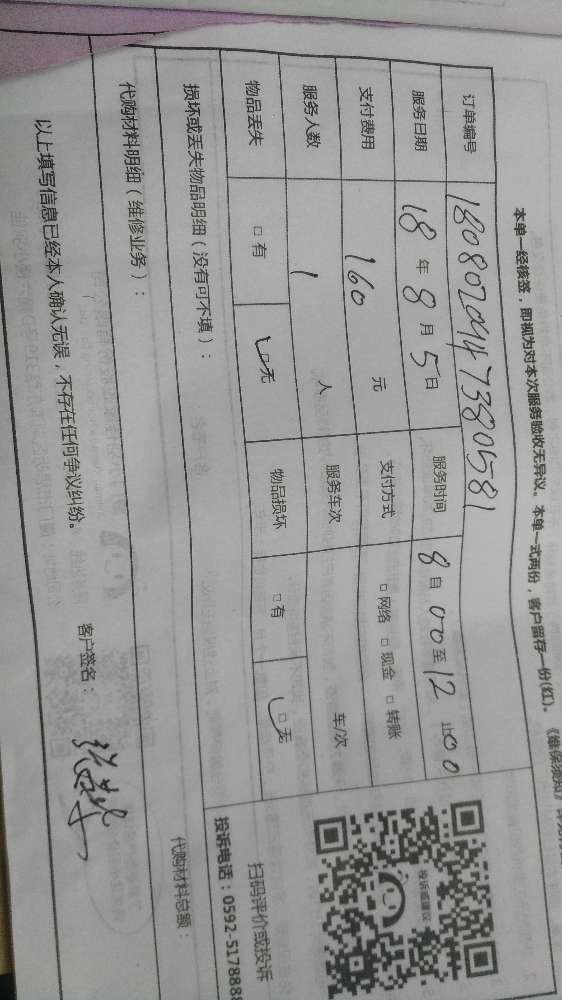 本单一经核签，即视为对本次服务验收无异议。本单一式两份，客户留存一份(红)。
订单编号 1808020447380581
服务日期 18 年 8 月 5 日 服务时间 8 自 00 至 12 止 00
支付费用 160 元 支付方式 □ 网络 □ 现金 □ 转账
服务人数 1 人 服务车次 车/次
物品丢失 □ 有 □ 无 物品损坏 □ 有 □ 无
扫码评价或投诉
投诉电话：0592-5178888
损坏或丢失物品明细（没有可不填）：
代购材料明细（维修业务）： 代购材料总额：
以上填写信息已经本人确认无误，不存在任何争议纠纷。 客户签名：